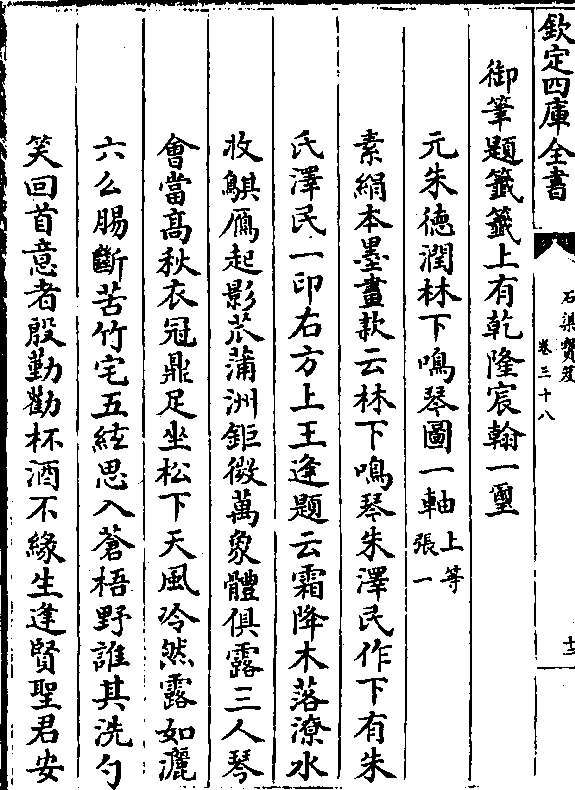 欽定四庫全書
石渠寶笈
卷三十八
十二
御筆題籤籤上有乾隆宸翰一璽
元朱徳潤林下鳴琴圖一軸上等張一
素絹本墨畫款云林下鳴琴朱澤民作下有朱
氏澤民一印右方上王逢題云霜降木落潦水
收鶀鴈起影茫蒲洲鉅微萬象體俱露三人琴
會當髙秋衣冠鼎足坐松下天風冷然露如灑
六么腸斷苦竹宅五絃思入蒼梧野誰其洗勺
笑回首意者殷勤勸杯酒不緣生逢賢聖君安